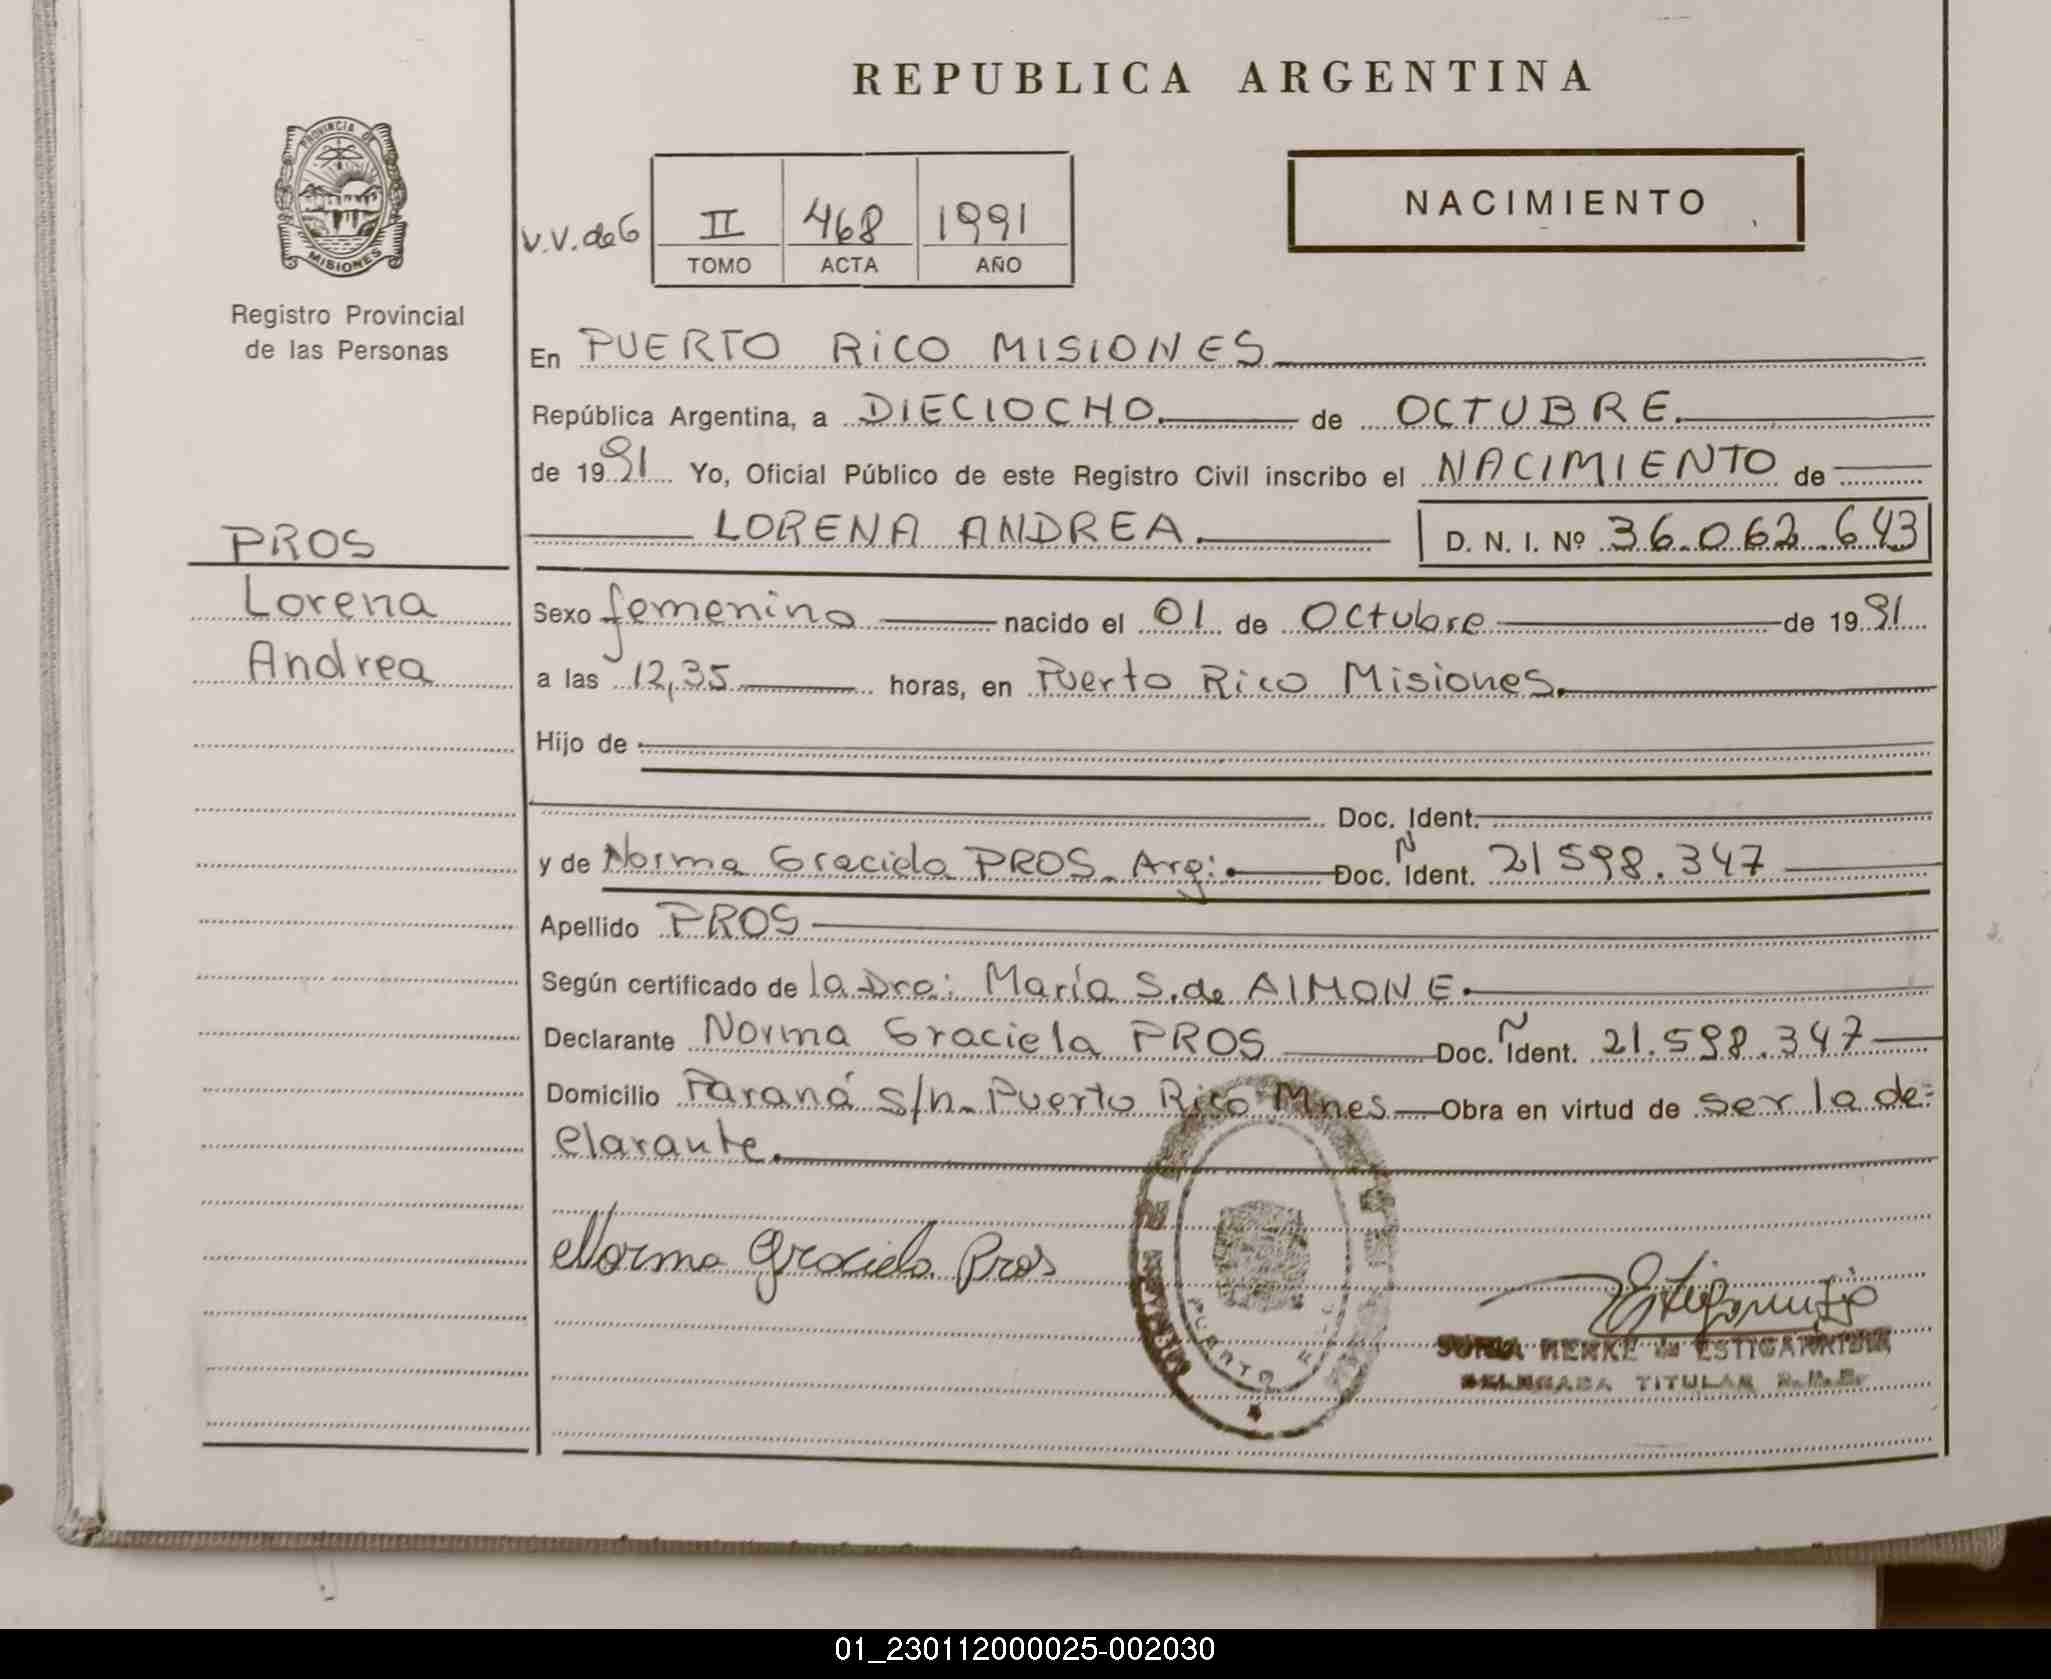 REPUBLICA ARGENTINA
PROVINCIA DE
MISIONES
Registro Provincial
de las Personas
NACIMIENTO
V.V. de G
II 468 1991
TOMO ACTA AÑO
En PUERTO RICO MISIONES
República Argentina, a DIECIOCHO. de OCTUBRE.
de 1991 Yo, Oficial Público de este Registro Civil inscribo el NACIMIENTO de
LORENA ANDREA. D. N. I. Nº 36.062.643
PROS
Lorena
Andrea
Sexo femenino nacido el 01 de Octubre de 1991
a las 12,35 horas, en Puerto Rico Misiones.
Hijo de
Doc. Ident.
y de Norma Graciela PROS. Arg: Doc. N Ident. 21 598.347
Apellido PROS
Según certificado de la Dra: María S. de AIMONE.
Declarante Norma Graciela PROS Doc. N Ident. 21.598.347
Domicilio Paraná s/n. Puerto Rico Mnes. Obra en virtud de ser la de-
clarante.
Norma Graciela Pros
PUERTO
MENKE de ESTIGARRIBIA
DELEGADA TITULAR
01_230112000025-002030